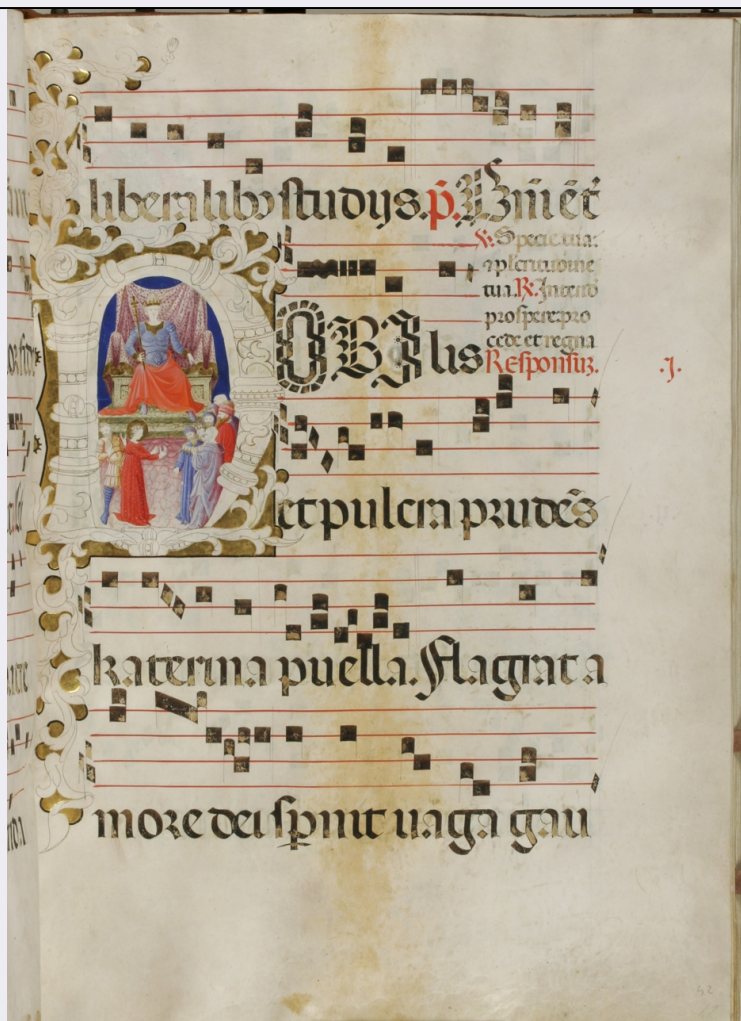 liberalibꝰ studijs. p̄. Bn̄i ē t̄
℣. Specie tua:
⁊ pl̄critudine
tua. ℟. Intend
prospere pro
cede et regna
NOBIlis Responsuȝ. .j.
et pulcra prudēs
katerina puella. Flagrat a
more dei spnit uaga gau